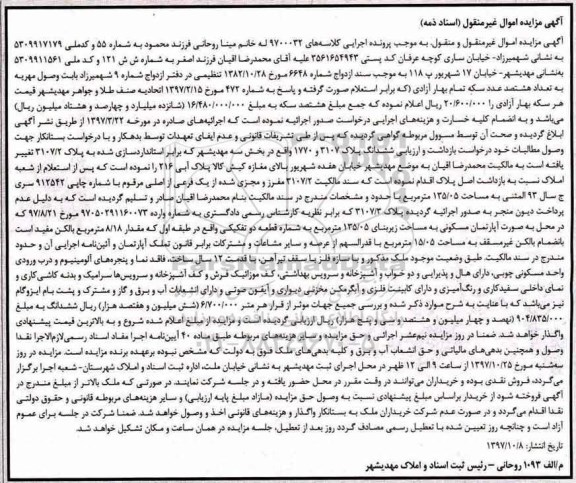 آگهی مزایده اموال غیرمنقول (اسناد ذمه)
آگهی مزایده اموال غیرمنقول و منقول، به موجب پرونده اجرایی کلاسه‌های ۹۷۰۰۰۳۲ له خانم مینا روحانی فرزند محمود به شماره ۵۵ و کدملی ۵۳۰۹۹۱۷۱۷۹
به نشانی شهمیرزاد- خیابان ساری کوچه عرفان کد پستی ۳۵۶۱۶۵۴۹۴۳ علیه آقای محمدرضا اقیان فرزند اصغر به شماره ش ش ۱۲۱ و کد ملی ۵۳۰۹۹۱۱۵۶۱
به‌نشانی مهدیشهر- خیابان ۱۷ شهریور پ ۱۱۸ به موجب سند ازدواج شماره ۶۶۴۸ مورخ ۱۳۸۲/۱۰/۲۸ تنظیمی در دفتر ازدواج شماره ۹ شهمیرزاد بابت وصول مهریه
به تعداد هشتصد عدد سکه تمام بهار آزادی (که برابر استعلام صورت گرفته و پاسخ به شماره ۴۷۲ مورخ ۱۳۹۷/۲/۱۵ اتحادیه صنف طلا و جواهر مهدیشهر قیمت
هر سکه بهار آزادی را ۲۰/۶۰۰/۰۰۰ ریال اعلام نموده که جمع مبلغ هشتصد سکه به مبلغ ۱۶/۴۸۰/۰۰۰/۰۰۰ (شانزده میلیارد و چهارصد و هشتاد میلیون ریال)
می‌باشد و به انضمام کلیه خسارت و هزینه‌های اجرایی درخواست صدور اجرائیه نموده است که اجرائیه‌های صادره در مورخه ۱۳۹۷/۳/۲۲ از طریق نشر آگهی
ابلاغ گردیده و صحت آن توسط مسوول مربوطه گواهی گردیده که پس از طی تشریفات قانونی و عدم ایفای تعهدات توسط بدهکار و با درخواست بستانکار جهت
وصول مطالبات خود درخواست بازداشت و ارزیابی ششدانگ پلاک ۳۱۰۷ و ۱۷۷۰ واقع در بخش سه مهدیشهر که برابر استانداردسازی شده به پلاک ۳۱۰۷/۲ تغییر
یافته است به مالکیت محمدرضا اقیان به موضع مهدیشهر خیابان هفده شهریور بالای مغازه کیش کالا پلاک آبی ۲۱۶ را نموده است که پس از استعلام از شعبه
املاک نسبت به بازداشت اصل پلاک اقدام نموده است که سند مالکیت ۳۱۰۷/۲ مفرز و مجزی شده از یک فرعی از اصلی مرقوم با شماره چاپی ۹۱۲۵۴۲ سری
ج سال ۹۳ المثنی به مساحت ۱۳۵/۰۵ مترمربع با حدود و مشخصات مندرج در سند مالکیت بنام محمدرضا اقیان صادر و تسلیم گردیده است که به دلیل عدم
پرداخت دیون منجر به صدور اجرائیه گردیده پلاک ۳۱۰۷/۲ که برابر نظریه کارشناس رسمی دادگستری به شماره وارده ۹۷۰۵۰۲۹۱۱۶۰۰۷۳ مورخ ۹۷/۸/۲۱ که
در محل به صورت آپارتمان مسکونی به مساحت زیربنای ۱۳۵/۰۵ مترمربع به شماره قطعه دو تفکیکی واقع در طبقه اول که مقدار ۸/۱۸ مترمربع بالکن مفید است
بانضمام بالکن غیرمسقف به مساحت ۱۵/۰۵ مترمربع با قدرالسهم از عرصه و سایر مشاعات و مشترکات برابر قانون تملک آپارتمان و آئین‌نامه اجرایی آن و حدود
مندرج در سند مالکیت. طبق وضعیت موجود ملک مذکور با سازه فلز با سقف تیرآهن، با قدمت ۱۲ سال ساخت، فاقد نما و پنجره‌های آلومینیوم و درب ورودی
واحد مسکونی چوبی، دارای هال و پذیرایی و دو خواب و آشپزخانه و سرویس بهداشتی، کف موزائیک فرش و کف آشپزخانه و سرویس‌ها سرامیک و بدنه کاشی‌کاری و
نمای داخلی سفیدکاری و رنگ‌آمیزی و دارای کابینت فلزی و آبگرمکن مخزنی دیواری و آیفون صوتی و دارای انشعابات آب و برق و گاز و مشترک و پشت بام ایزوگام
نیز می‌باشد که با عنایت به شرح موارد ذکر شده و بررسی جمیع جهات موثر از قرار هر متر ۶/۷۰۰/۰۰۰ (شش میلیون و هفتصد هزار) ریال ششدانگ به مبلغ
۹۰۴/۸۳۵/۰۰۰ (نهصد و چهار میلیون و هشتصد و سی و پنج هزار) ریال ارزیابی گردیده است و مزایده از مبلغ اعلام شده شروع و به بالاترین قیمت پیشنهادی
واگذار خواهد شد. ضمنا در روز مزایده نیم‌عشر اجرائی و حق مزایده و سایر هزینه‌های مربوطه طبق ماده ۴۰ آیین‌نامه اجرا مفاد اسناد رسمی لازم‌الاجرا نقدا
وصول و همچنین بدهی‌های مالیاتی و حق انشعاب آب و برق و کلیه بدهی‌های ملک فوق به دولت که مشخص نبوده برعهده برنده مزایده است. مزایده در روز
سه‌شنبه مورخ ۱۳۹۷/۱۰/۲۵ از ساعت ۹ الی ۱۲ ظهر در محل اجرای ثبت مهدیشهر به نشانی خیابان ملت، اداره ثبت اسناد و املاک شهرستان- شعبه اجرا برگزار
می‌گردد، فروش نقدی بوده و خریداران می‌توانند در وقت مقرر در محل حضور یافته و در جلسه شرکت نمایند. در صورتی که ملک بالاتر از مبلغ مندرج در
آگهی فروخته شود از خریدار براساس مبلغ پیشنهادی نسبت به وصول حق مزایده (مازاد مبلغ پایه ارزیابی) و سایر هزینه‌های مربوطه قانونی و حقوق دولتی
نقدا اقدام می‌گردد و در صورت عدم شرکت خریداران ملک به بستانکار واگذار و هزینه‌های قانونی اخذ و وصول خواهد شد. ضمنا شرکت در جلسه برای عموم
آزاد است و چنانچه روز تعیین شده با تعطیل رسمی مصادف گردد روز بعد از تعطیل، جلسه مزایده در همان ساعت و مکان تشکیل خواهد شد.
تاریخ انتشار: ۱۳۹۷/۱۰/۸
م/الف ۱۰۹۳ روحانی – رئیس ثبت اسناد و املاک مهدیشهر